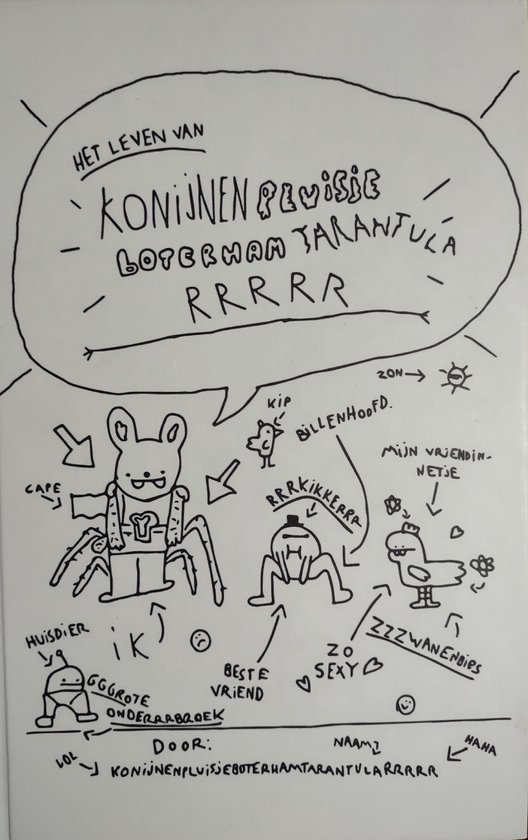 HET LEVEN VAN
KONIJNEN PLUISJE
BOTERHAM TARANTULA
RRRRR
ZON
KIP
BILLENHOOFD.
MIJN VRIENDIN-
NETJE
CAPE
RRRKIKKERRR
IK
ZZZWANENBIPS
HUISDIER
ZO
SEXY
BESTE
VRIEND
GGGROTE
ONDERRRBROEK
DOOR:
NAAM
HAHA
LOL
KONIJNENPLUISJEBOTERHAMTARANTULARRRRR